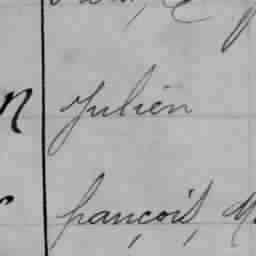 n Julien
françois, M